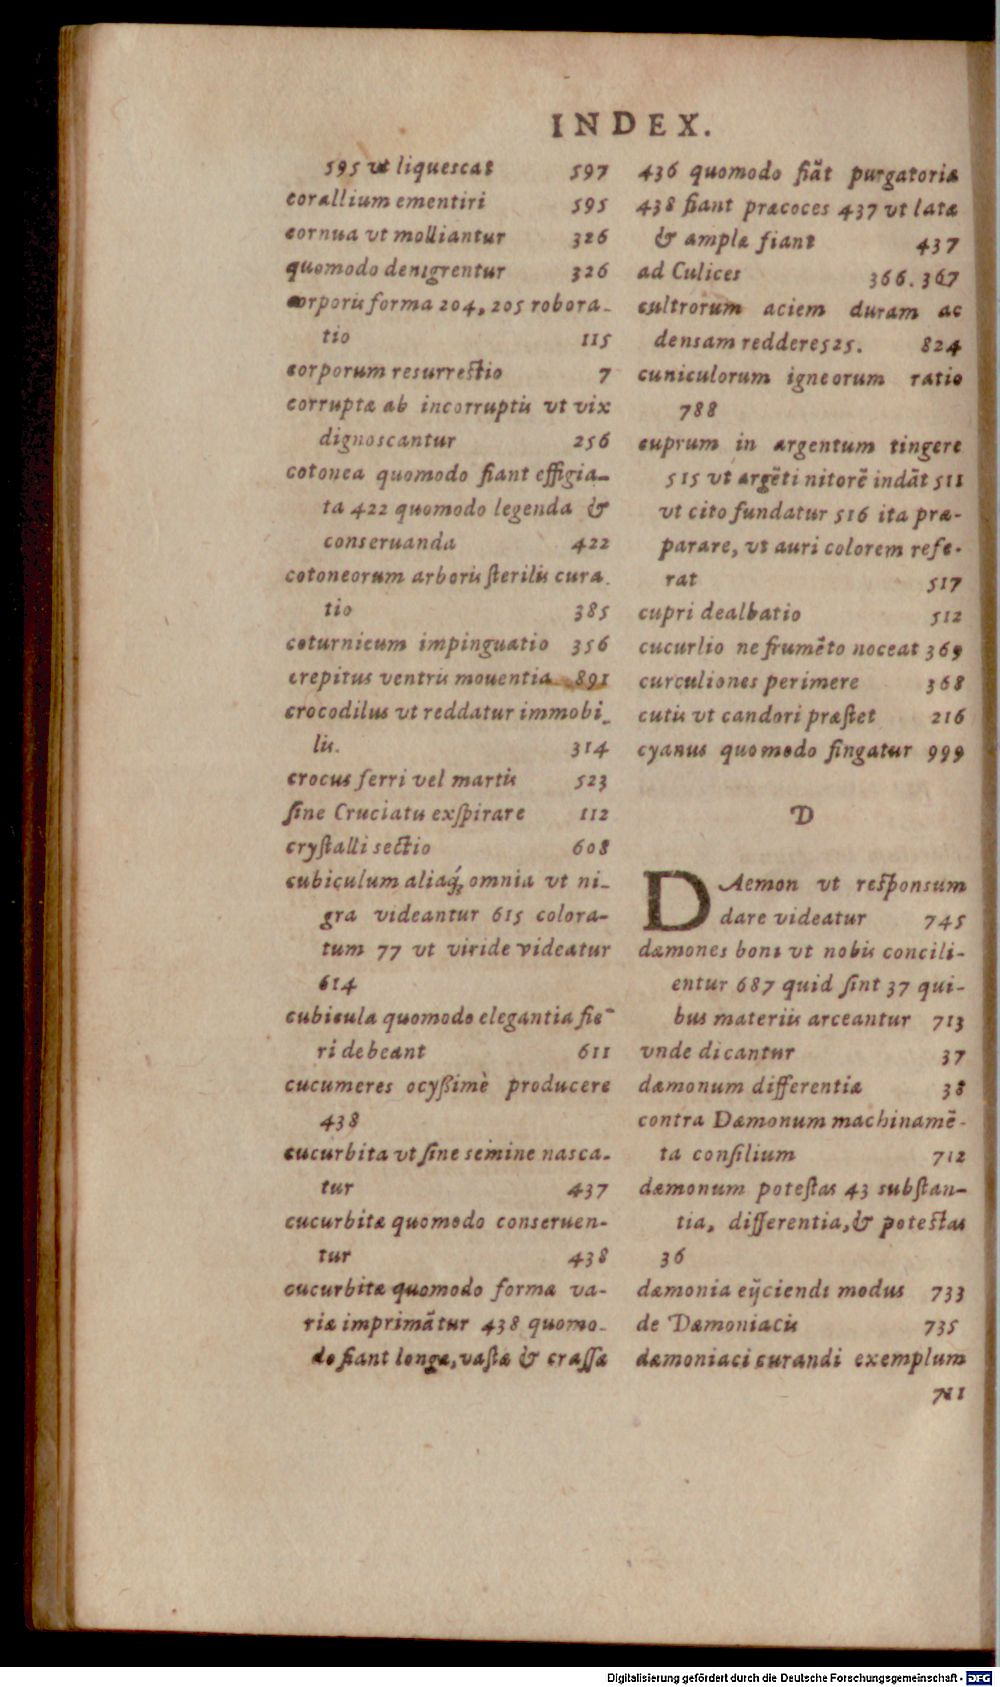 INDEX.
595 ut liquescat 597
corallium ementiri 595
cornua vt molliantur 326
quomodo denigrentur 326
corporis forma 204, 205 robora-
tio 115
corporum resurrectio 7
corruptæ ab incorruptis vt vix
dignoscantur 256
cotonea quomodo fiant effigia-
ta 422 quomodo legenda &
conseruanda 422
cotoneorum arboris sterilis cura-
tio 385
coturnicum impinguatio 356
crepitus ventris mouentia 891
crocodilus vt reddatur immobi-
lis. 314
crocus ferri vel martis 523
sine Cruciatu exspirare 112
crystalli sectio 608
cubiculum aliaq́; omnia vt ni-
gra videantur 615 colora-
tum 77 vt viride videatur
614
cubicula quomodo elegantia fie-
ri debeant 611
cucumeres ocyßimè producere
438
cucurbita vt sine semine nasca-
tur 437
cucurbitæ quomodo conseruen-
tur 438
cucurbitæ quomodo forma va-
riæ imprimãtur 438 quomo-
do fiant longæ, vastæ & crassæ
436 quomodo fiãt purgatoriæ
438 fiant præcoces 437 vt latæ
& amplæ fiant 437
ad Culices 366. 367
cultrorum aciem duram ac
densam reddere 525. 824
cuniculorum igneorum ratio
788
cuprum in argentum tingere
515 vt argẽti nitorẽ indãt 511
vt cito fundatur 516 ita præ-
parare, vt auri colorem refe-
rat 517
cupri dealbatio 512
cucurlio ne frumẽto noceat 369
curculiones perimere 368
cutis vt candori præstet 216
cyanus quomodo fingatur 999
D
DAemon vt responsum
dare videatur 745
dæmones boni vt nobis concili-
entur 687 quid sint 37 qui-
bus materiis arceantur 713
vnde dicantur 37
dæmonum differentiæ 38
contra Dæmonum machinamẽ-
ta consilium 712
dæmonum potestas 43 substan-
tia, differentia, & potestas
36
dæmonia eijciendi modus 733
de Dæmoniacis 735
dæmoniaci curandi exemplum
711
Digitalisierung gefördert durch die Deutsche Forschungsgemeinschaft - DFG